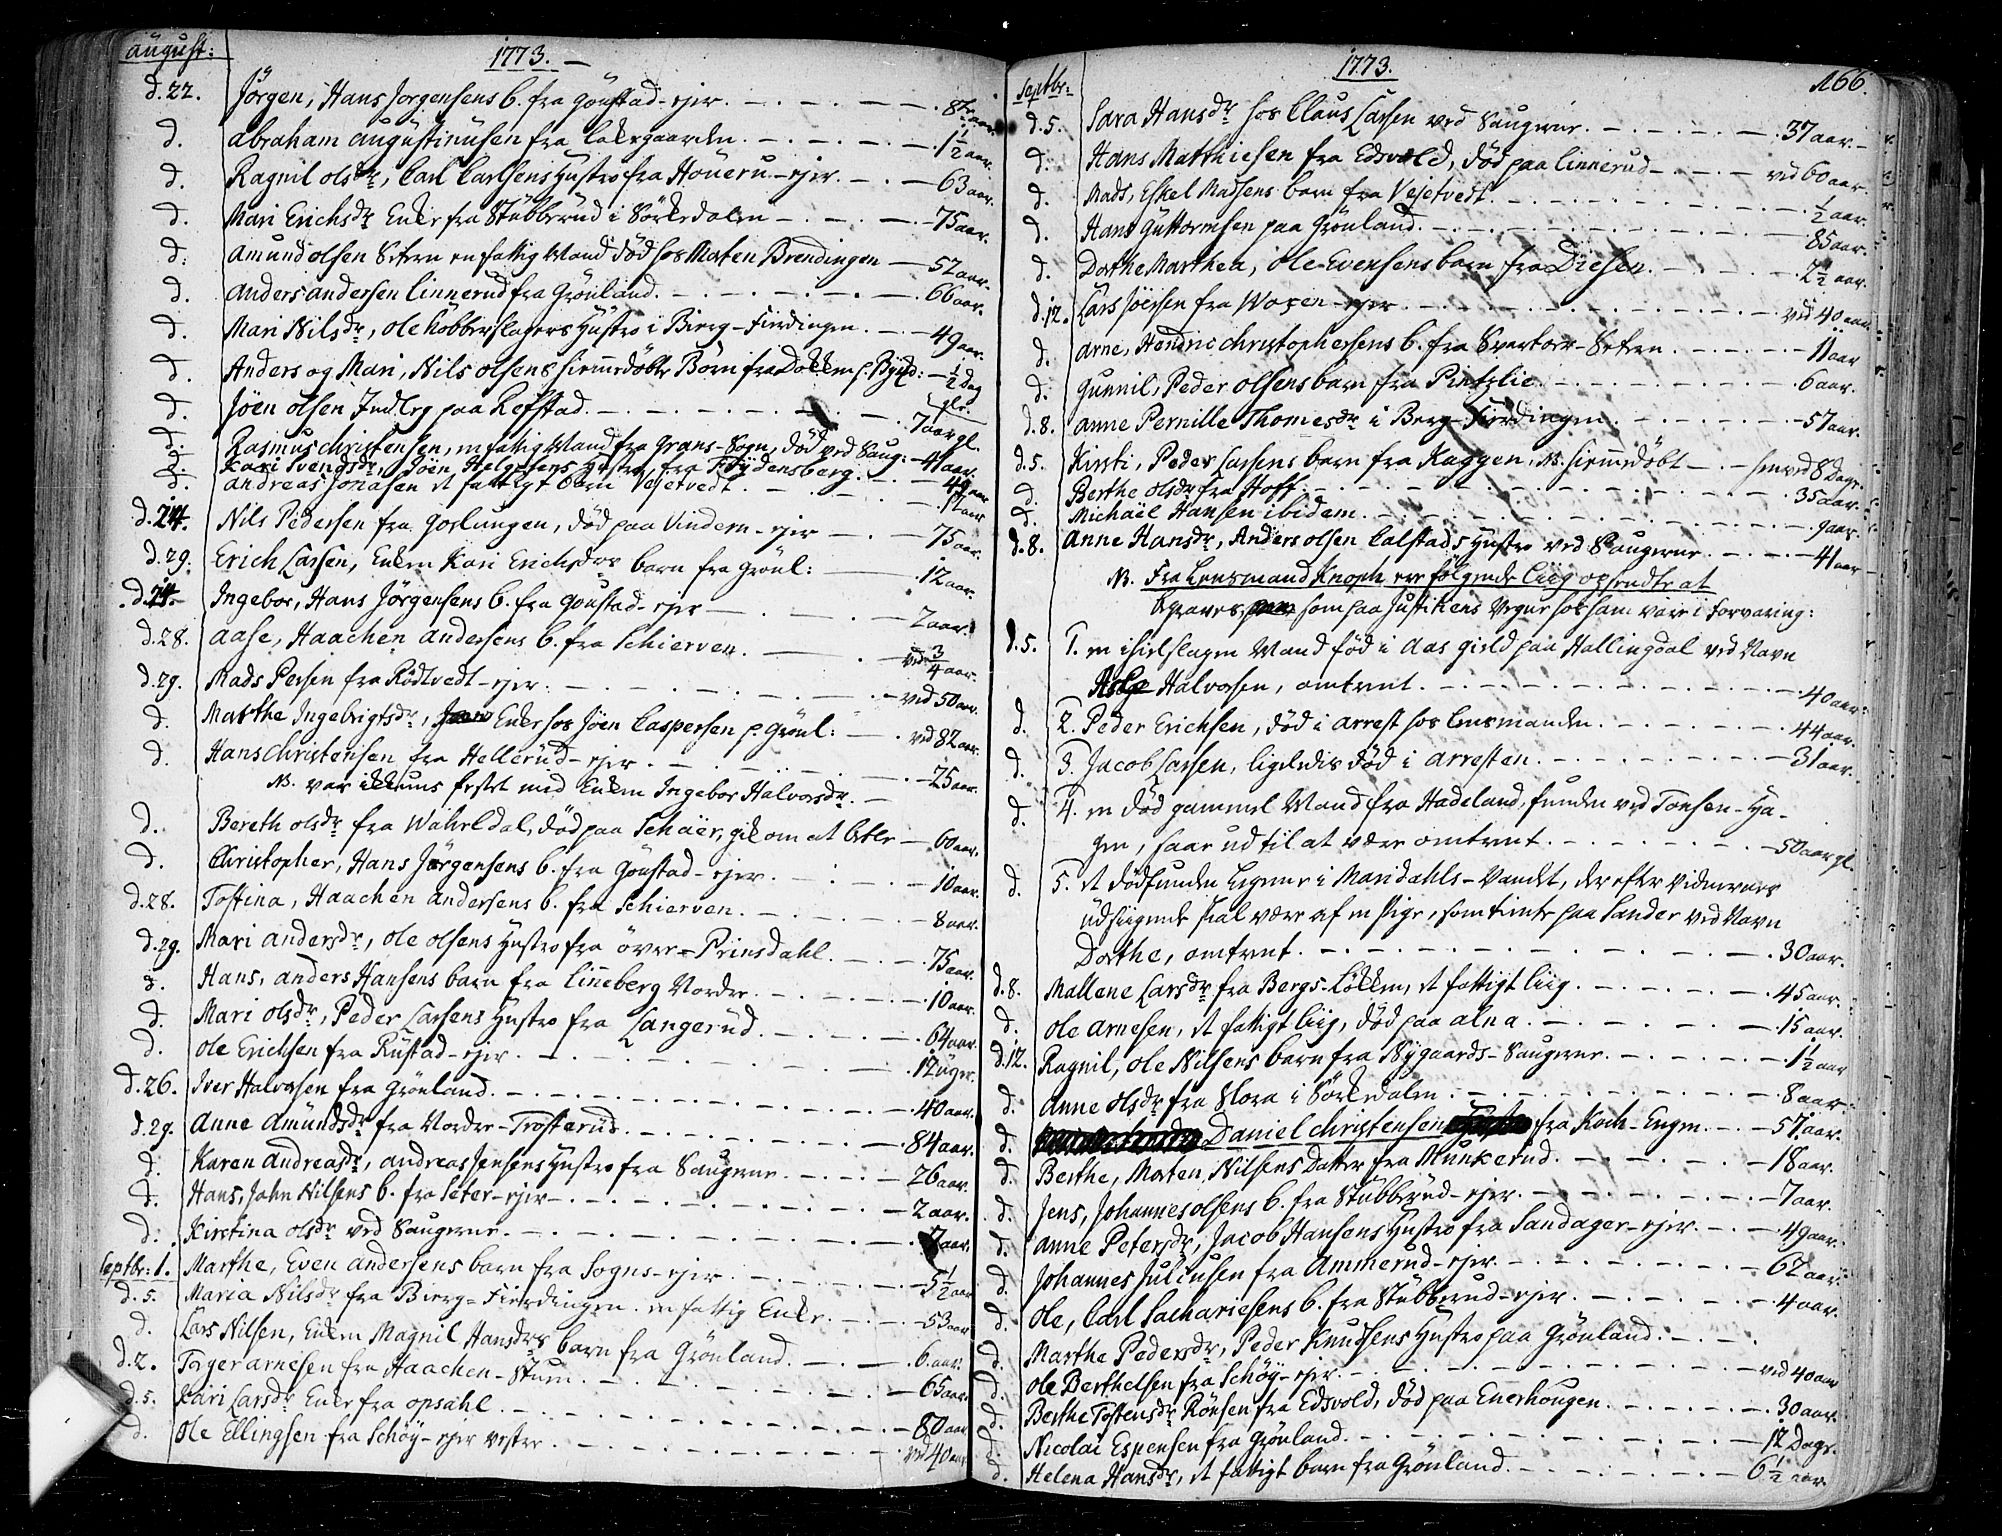 august:
1773.
d.22. Jörgen, Hans Jorgensens b. fra Goustad-ejer 8 aar.
d. Abraham Augustinusen fra Lakegaarden 1½ aar.
d. Ragnil olsdr, Carl Carlsens Hustro fra Höueru-ejer 63 aar.
d. Mari Erichsdr Enke fra Stubberud i Sörkedalen 75 aar.
d. Amund olsen Setren en fattig Mand död hos Morten Brendingen 52 aar.
d. Anders andersen Linnerud fra Grönland 66 aar.
d. Mari Nilsdr, ole Kobberslagers Hustro i Bierg-Fierdingen 49 aar.
d. Anders og Mari, Nils olsens hiemmedöbte Börn fra Dokken p. Bÿgd: ½ Dag glr.
d. Jöen olsen Indleg paa Refstad 7 aar gl.
d. Rasmus christensen, en fattig Mand fra Grans-Sogn, död ved Saug: 41 aar.
d. Kari Svendsdr, Joen Helgesens Hustro, fra Frÿdensberg 49 aar.
d. andreas Jonasen et fattigt barn Vejetvedt 11 aar
d.24. Nils Pedersen fra Goslungen, död paa Vindern-ejer 75 aar.
d.29. Erich Larsen, Enken Kari Erichsdrs barn fra Grönl: 12 aar.
d.24. Ingebor, Hans Jörgensens b. fra Goustad-ejer 2 aar.
d.28. Aase, Haachen Andersens b. fra Schierven ved ¾ aar.
d.29. Mads Persen fra Rödtvedt-ejer ved 50 aar.
d. Marthe Ingebrigtsdr, Enke hos Jöen Caspersen p. Grönl: ved 82 aar.
d. Hans Christensen fra Hellerud-ejer 25 aar.
NB. var ikkuns festet med Enken Ingebor Halvorsdr.
d. Bereth olsdr fra Wahrldal, död paa Schäer, gik om at betle 60 aar.
d. Christopher, Hans Jörgensens b. fra Goustad-ejer 10 aar.
d.28. Tostina, Haachen Andersens b. fra Schierven 8 aar.
d.29. Mari Andersdr, ole olsens Hustro fra över-Prinsdahl 75 aar.
d. Hans, Anders Hansens barn fra Linneberg Nordre 10 aar.
d. Mari olsdr, Peder Larsens Hustro fra Langerud 64 aar.
d. Ole Erichsen fra Rustad-ejer 12 uger.
d.26. Iver Halvorsen fra Grönland 40 aar.
d.29. Anne Amundsdr fra Nordre-Trosterud 84 aar.
d. Karen Andreasdr, Andreas Jensens Hustro fra Saugene 26 aar.
d. Hans, John Nilsens b. fra Seter-ejer 2 aar.
d. Kirstina olsdr ved Saugerne 7 aar.
Septbr: 1. Marthe, Even Andersens barn fra Sogns-ejer 5½ aar
d.5. Maria Nilsdr fra Bierg-Fierdingen en fattig Enke 53 aar
d. Lars Nilsen, Enken Magnil Hansdrs barn fra Grönland 6 aar.
d.2. Torger Arnesen fra Haachen-Stuen 65 aar.
d.5. Kari Larsdr Enke fra Opsahl 80 aar
d. Ole Ellingsen fra Schöy-ejer vestre ved 40 aar
1773.
166.
Septbr:
d.5. Sara Hansdr hos Claus Larsen ved Saugerne 37 aar.
d. Hans Matthiesen fra Edsvold, död paa Linnerud ved 60 aar.
d. Mads, Eskel Madsens barn fra Vejetvedt ½ aar.
d. Hans Guttormsen paa Grönland 85 aar.
d. Dorthe Marthea, Ole Evensens barn fra Diesen 2½ aar.
d.12. Lars Jöensen fra Woxen-ejer ved 40 aar
d. Arne, Hendric Christophersens b. fra Svartorr-Setren 11 aar
d. Gunnil, Peder olsens barn fra Pintzlie 6 aar.
d.8. Anne Pernille Thomesdr i Berg-Fierdingen 57 aar.
d.5. Kirsti, Peder Larsens barn fra Kaggen, NB. hiemmedöbt ved 8 Dage.
d. Berthe olsdr fra Hoff 35 aar.
d. Michäel Hansen ibidem 9 aar.
d.8. Anne Hansdr, Anders olsen Calstads Hustro ved Saugerne 41 aar
NB. Fra Lensmand Knoph ere fölgende Liig opsendte at
begraves, som paa Justitiens Vegne hos ham vare i Forvaring:
d.5. 1. en ihielslagen Mand föd i Aas gield paa Hallingdal ved Navn
Halvorsen, omtrent 40 aar.
d. 2. Peder Erichsen, död i Arrest hos Lensmanden 44 aar.
d. 3. Jacob Larsen, ligeledes död i Arresten 31 aar.
d. 4. en död gammel Mand fra Hadeland, funden ved Tonsen-Ha-
gen, saae ud til at være omtrent 50 aar gl.
d. 5. et dödfunden Legeme i Maridahls-Vandet, der efter Vidnernes
udsigende skal være af en Pige, som tiente paa Sander ved Navn
Dorthe, omtrent 30 aar.
d.8. Mallene Larsdr fra Bergs-Lökken, et fattigt Liig 45 aar.
d. Ole Arnesen, et fattigt Liig, död paa Alna 15 aar.
d.12. Ragnil, Ole Nilsens barn fra Nÿgaards-Saugerne 1½ aar
d. Anne olsdr fra Slora i Sörkedalen 8 aar.
d. Daniel Christensen fra Koch-Engen 57 aar.
d. Berthe, Morten Nilsens Datter fra Munkerud 18 aar.
d. Jens, Johannes olsens b. fra Stubberud-ejer 7 aar.
d. Anne Petersdr, Jacob Hansens Hustro fra Sandager-ejer 49 aar.
d. Johannes Juliusen fra Ammerud-ejer 62 aar.
d. Ole, Carl Sachariesens b. fra Stubberud-ejer 4 aar.
d. Marthe Pedersdr, Peder Knudsens Hustro paa Grönland
d. Ole Berthelsen fra Schöy-ejer ved 40 aar
d. Berthe Tostensdr Rönsen fra Edsvold, död paa Enerhougen 30 aar.
d. Nicolai Espensen fra Grönland 12 Dage.
d. Helena Hansdr, et fattigt barn fra Grönland 6½ aar.